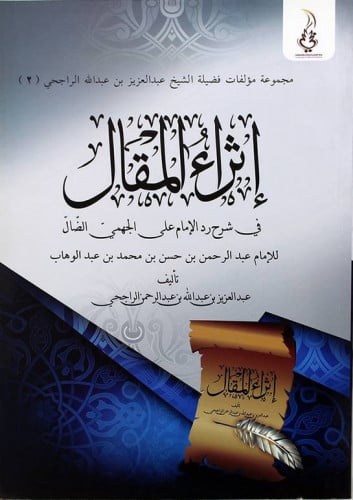 مجموعة مؤلفات فضيلة الشيخ عبدالعزيز بن عبدالله الراجحي (٢)
إثراء المقال
في شرح رد الإمام على الجهمي الضّال
للإمام عبد الرحمن بن حسن بن محمد بن عبد الوهاب
تأليف
عبدالعزيز بن عبدالله بن عبدالرحمن الراجحي
إثراء المقال